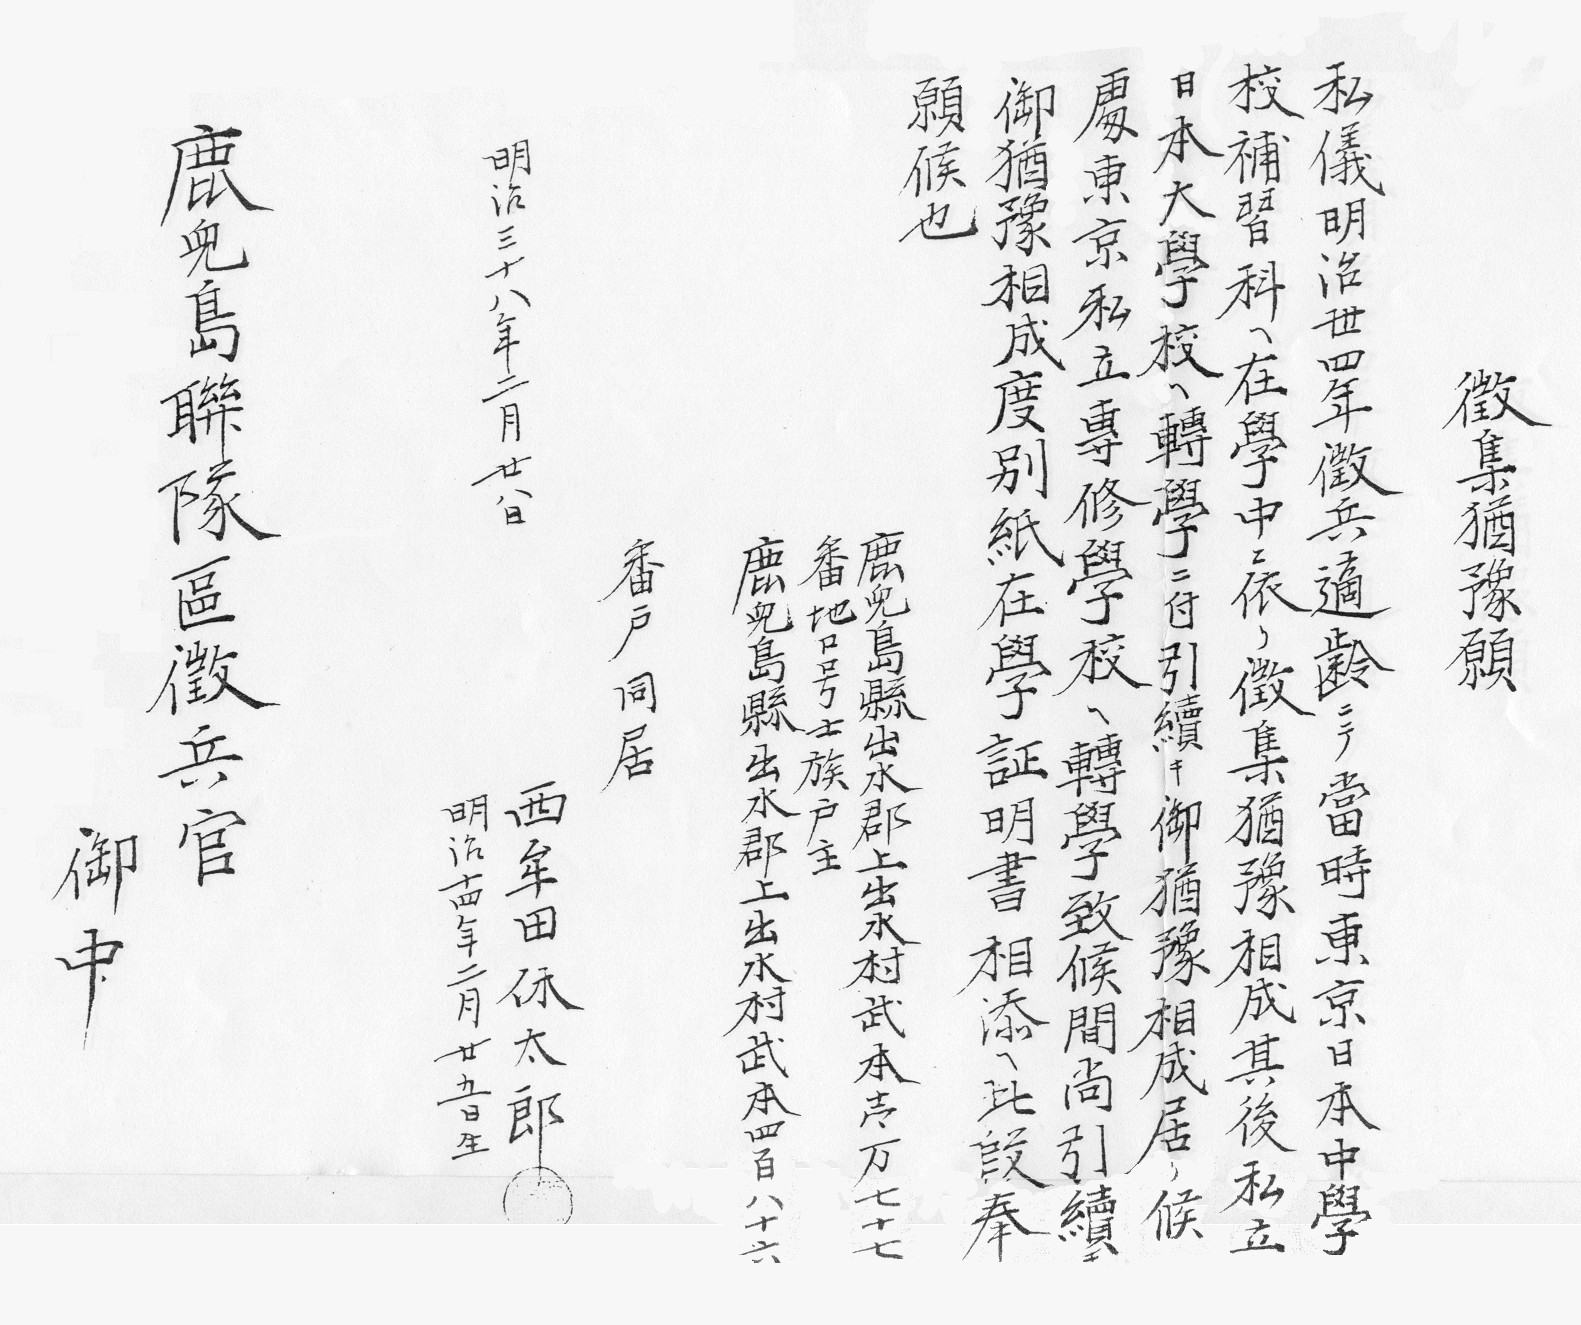 徴集猶豫願
私儀明治丗四年徴兵適齢ニテ當時東京日本中學
校補習科ヘ在學中ニ依リ徴集猶豫相成其後私立
日本大學校ヘ轉學ニ付引續キ御猶豫相成居リ候
處東京私立專修學校ヘ轉學致候間尚引續キ
御猶豫相成度別紙在學証明書相添ヘ此段奉
願候也
鹿兒島縣出水郡上出水村武本壱万七十七
番地口号士族戸主
鹿兒島縣出水郡上出水村武本四百八十六
番戸同居
西牟田休太郎
明治三十八年二月廿八日
明治十四年二月廿五日生
鹿兒島聯隊區徴兵官
御中